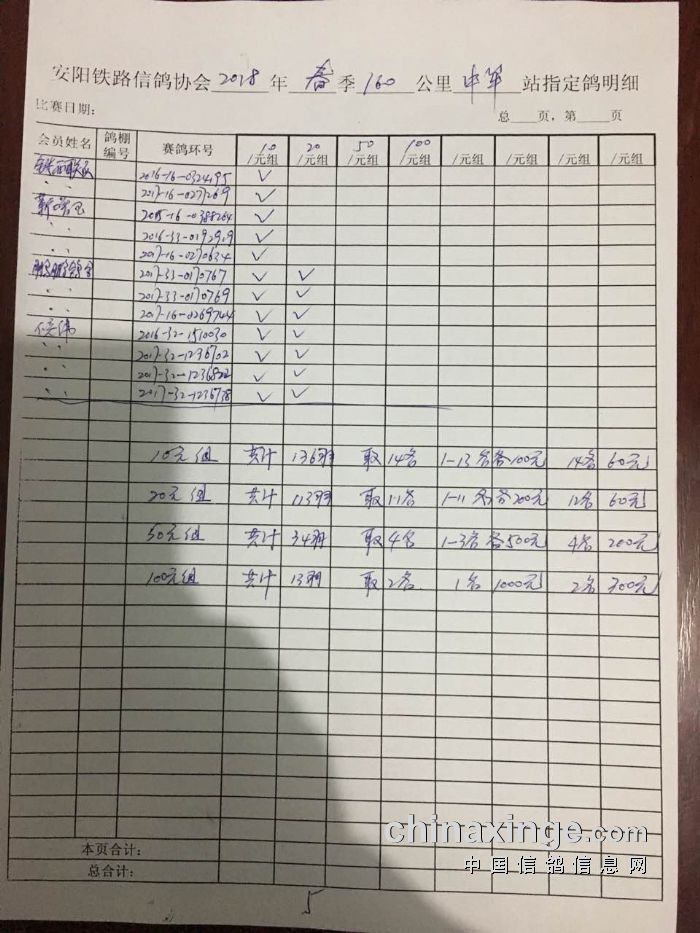 安阳铁路信鸽协会 2018 年 春 季 160 公里 站指定鸽明细
比赛日期: 总 页，第 页
会员姓名 鸽棚编号 赛鸽环号 10/元组 20/元组 50/元组 100/元组 /元组 /元组 /元组 /元组
2016-16-0324195 ✓
〃 2017-16-0271269 ✓
2015-16-0388264 ✓
〃 2016-33-0192919 ✓
〃 2017-16-0270634 ✓
2017-33-0170767 ✓ ✓
〃 2017-33-0170769 ✓ ✓
〃 2017-16-0269744 ✓ ✓
2016-32-1510030 ✓ ✓
〃 2017-32-1236702 ✓ ✓
〃 2017-32-1236822 ✓ ✓
〃 2017-32-1236738 ✓ ✓
10元组 共计 136羽 取14名 1-13名各100元 14名 60元
20元组 共计 113羽 取11名 1-11名各200元 12名 60元
50元组 共计 34羽 取4名 1-3名各500元 4名 200元
100元组 共计 13羽 取2名 1名 1000元 2名 300元
本页合计:
总合计:
chinaxinge.com
中国信鸽信息网
5